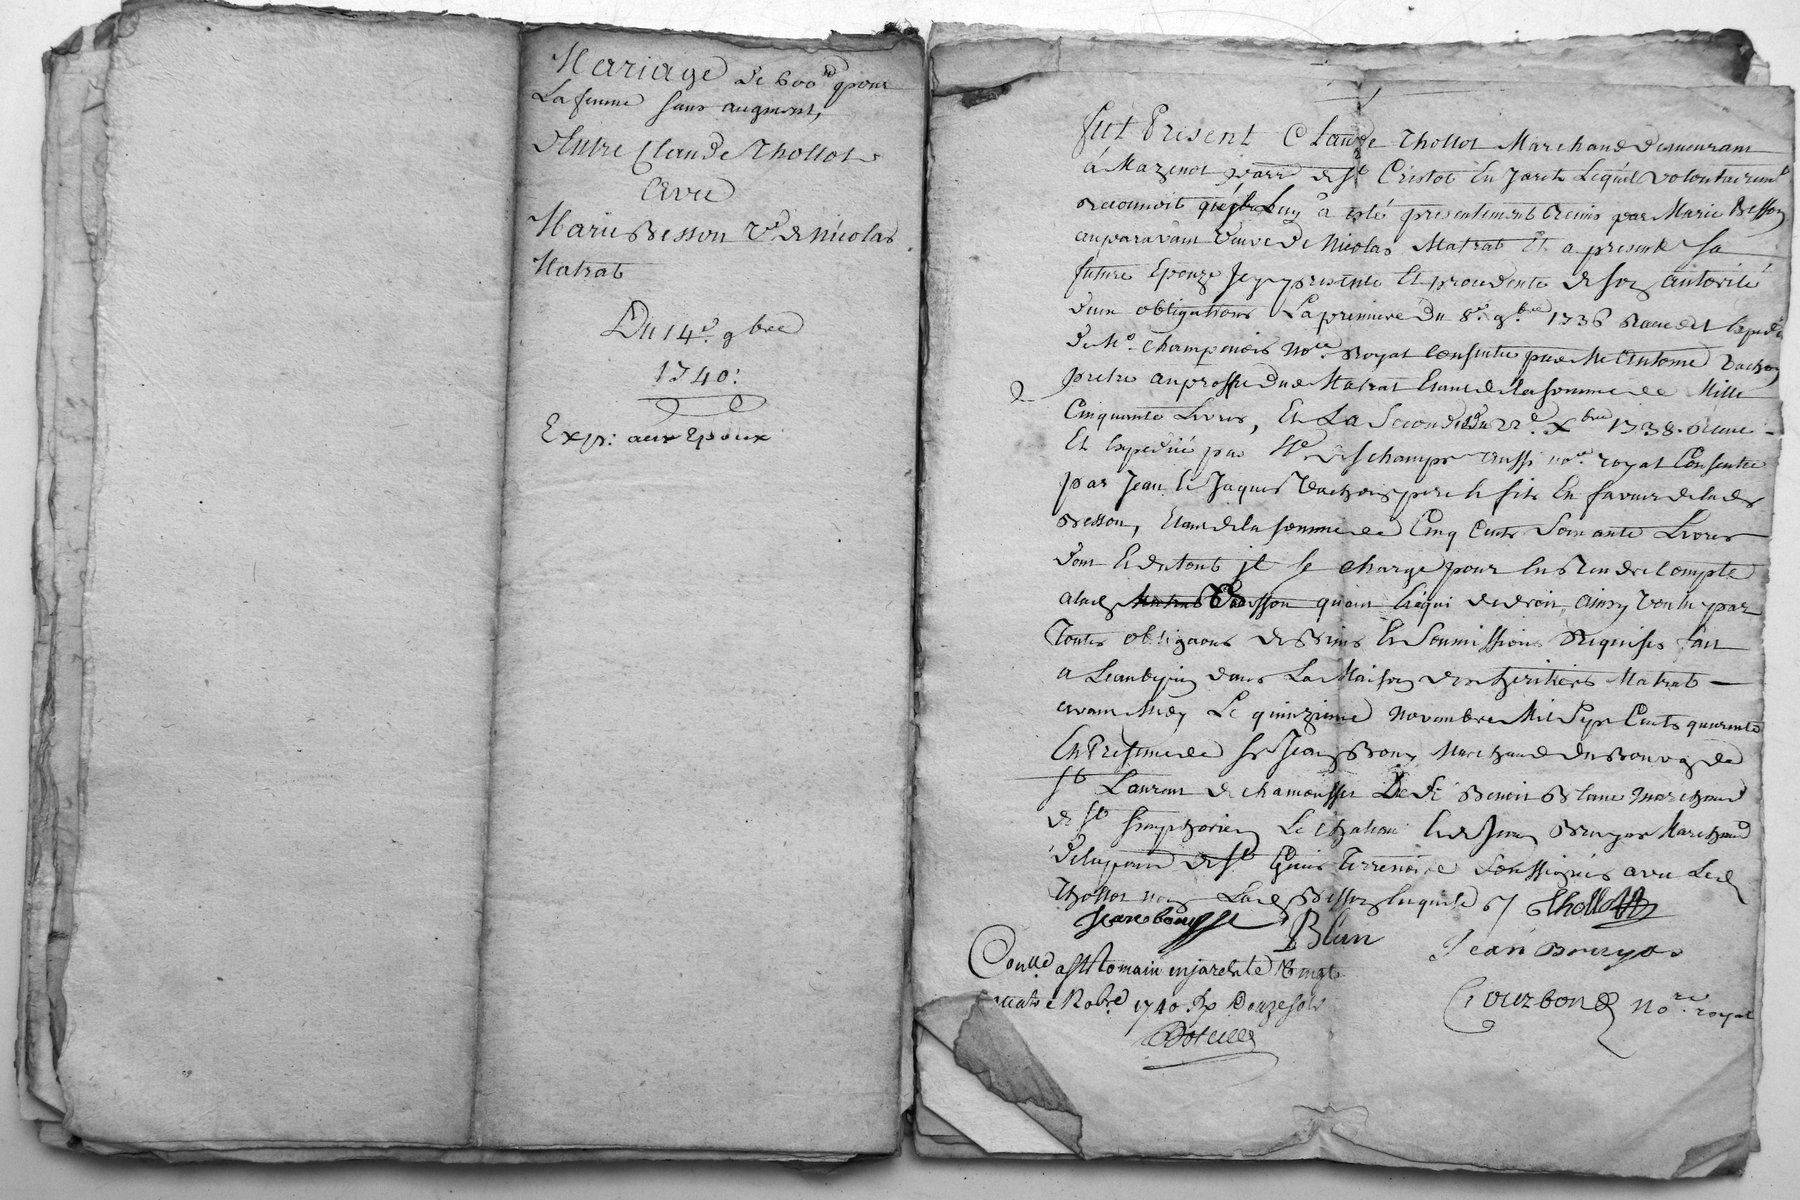 Mariage de 600ᵗᵗ pour
La femme sans augment,
Entre Claude Thollot
Avec
Marie Besson Vᵉ de Nicolas
Matrat
Du 14ᵉ. 9bre
1740:
Exp: aux Epoux
fut Present Claude Thollot Marchand demeurant
á Mazenod parr de Sᵗ Cristot En Jarets Lequel volontairemᵗ
reconnoit que Luy a esté presentement Remis par Marie Besson
auparavant Veuve de Nicolas Matrat Et a present sa
future Epouze Icy presente Et procedente de son autorité
deux obligations La premiere du 8ᵉ. 9bre 1736 Receue Et Expedᵉ
de Mᵉ Champanois noʳᵉ. Royal Consentie par Mʳ Antoine Vachon
pretre au proffit dud Matrat Etant de la somme de Mille
Cinquante Livres, Et La Seconde du 22ᵉ. Xbre 1738. Receue
Et Expediée par Mᵉ deschamps aussi noʳᵉ royal Consentie
par Jean Et Jaques Vachon pere Et fils En faveur de lade
Besson, Etant de la somme de Cinq Cents Soixante Livres
dont Et du tout il se charge pour En Rendre Compte
a lad Besson quant Et a qui de droit, ainsy voulu par
Toutes obligaons de Biens Et Soumissions Requises fait
a dans La Maison des heritiers Matrat
avant Midy Le quinzieme Novembre Mil Sept Cents quarente
En Presence de Sʳ Jean Marchand du Bourg de
Sᵗ Laurent de chamousset De Sʳ Benoit Blanc Marchand
de Sᵗ Simphorien Le Chateau Et de Jean Bruyas Marchand
de la parr de Sᵗ Genis Terrenoire Soussignés avec Led
Thollot non Lad Besson Enquise
Thollot
Blan
Jean Bruyas
Conllé a Sᵗ Romain en jarest le Vingt
quatre Nobre 1740. Rp Douze sols
Bourbon noʳᵉ royal